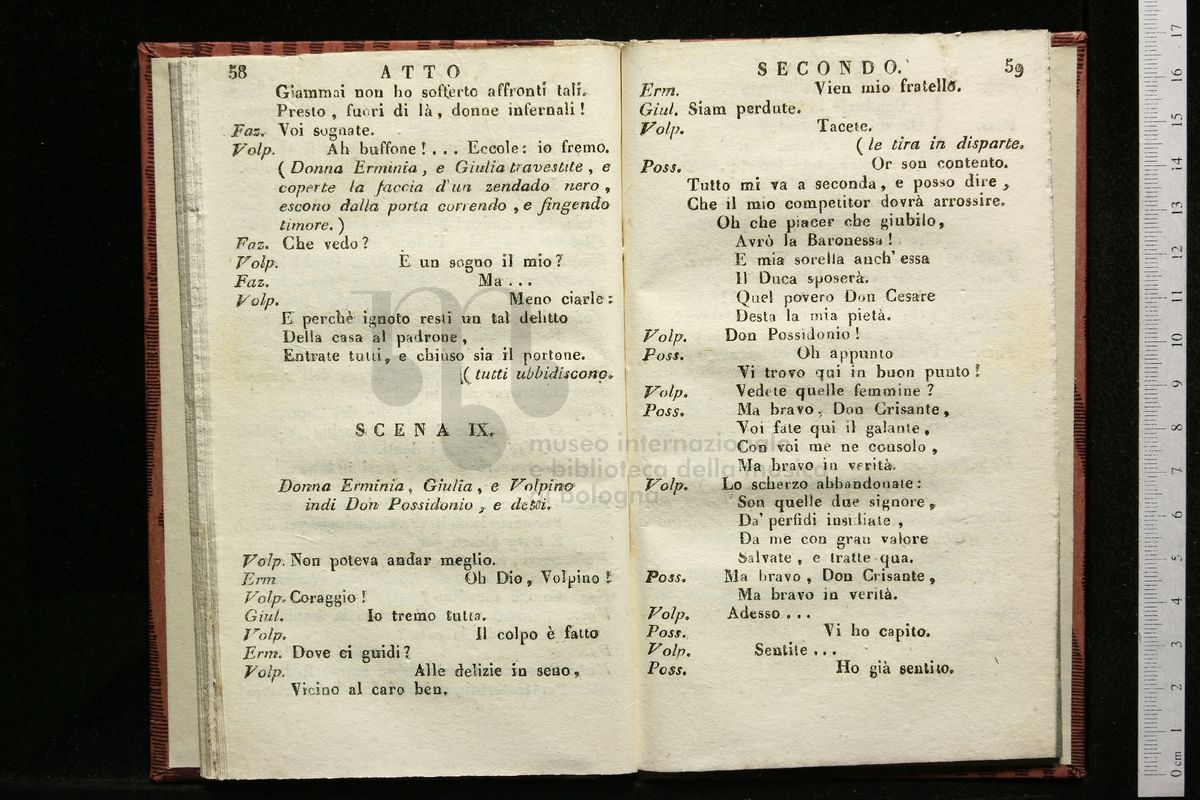 58 ATTO
Giammai non ho sofferto affronti tali.
Presto , fuori di là, donne infernali !
Faz. Voi sognate.
Volp. Ah buffone ! . . . Eccole: io fremo.
( Donna Erminia, e Giulia travestite , e
coperte la faccia d'un zendado nero ,
escono dalla porta correndo , e fingendo
timore. )
Faz. Che vedo ?
Volp. È un sogno il mio ?
Faz. Ma . . .
Volp. Meno ciarle:
E perchè ignoto resti un tal delitto
Della casa al padrone ,
Entrate tutti, e chiuso sia il portone.
( tutti ubbidiscono.
SCENA IX.
Donna Erminia, Giulia, e Volpino
indi Don Possidonio, e detti.
Volp. Non poteva andar meglio.
Erm Oh Dio, Volpino !
Volp. Coraggio !
Giul. Io tremo tutta.
Volp. Il colpo è fatto
Erm. Dove ci guidi ?
Volp. Alle delizie in seno,
Vicino al caro ben.
SECONDO. 59
Erm. Vien mio fratello.
Giul. Siam perdute.
Volp. Tacete.
( le tira in disparte.
Poss. Or son contento.
Tutto mi va a seconda, e posso dire ,
Che il mio competitor dovrà arrossire.
Oh che piacer che giubilo,
Avrò la Baronessa !
E mia sorella anch' essa
Il Duca sposerà.
Quel povero Don Cesare
Desta la mia pietà.
Volp. Don Possidonio !
Poss. Oh appunto
Vi trovo qui in buon punto !
Volp. Vedete quelle femmine ?
Poss. Ma bravo, Don Crisante,
Voi fate qui il galante,
Con voi me ne consolo ,
Ma bravo in verità.
Volp. Lo scherzo abbandonate:
Son quelle due signore,
Da' perfidi insidiate ,
Da me con gran valore
Salvate , e tratte qua.
Poss. Ma bravo , Don Crisante,
Ma bravo in verità.
Volp. Adesso . . .
Poss. Vi ho capito.
Volp. Sentite . . .
Poss. Ho già sentito.
museo internazionale
e biblioteca della musica
di bologna
0 cm 1 2 3 4 5 6 7 8 9 10 11 12 13 14 15 16 17